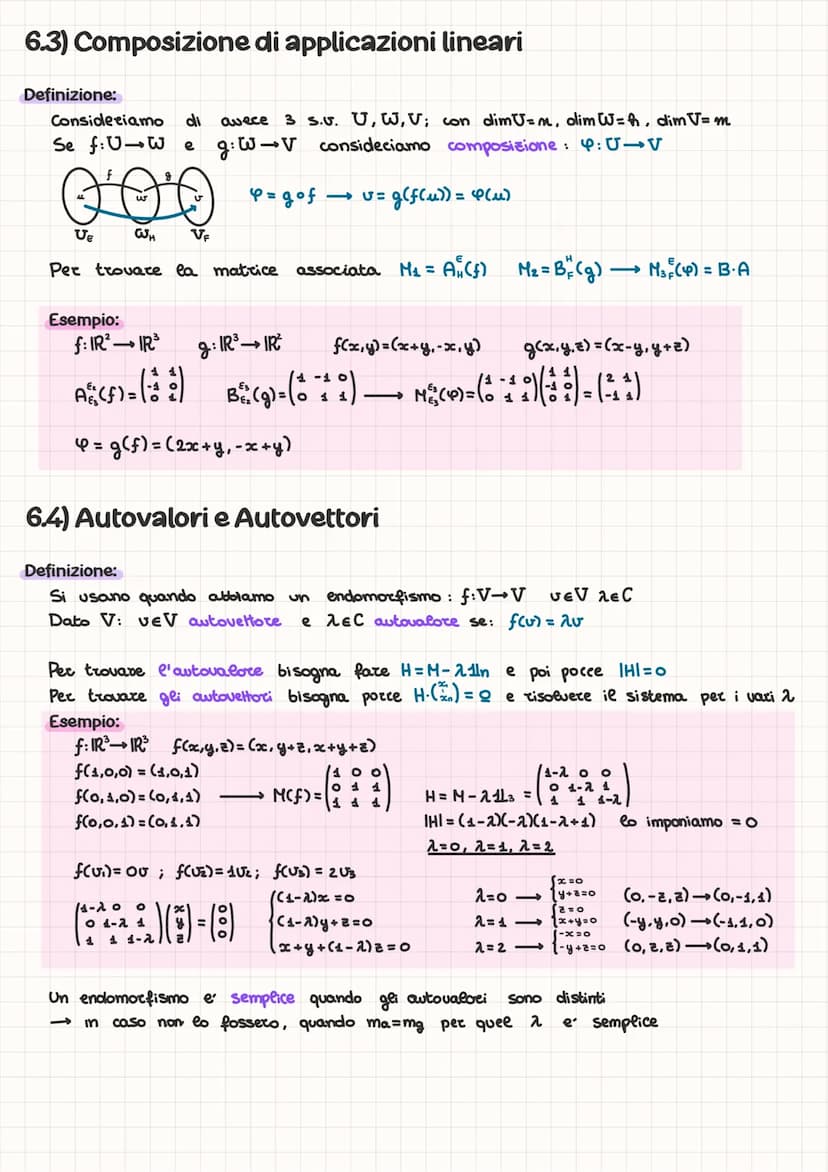 6.3) Composizione di applicazioni lineari
Definizione:
Consideriamo di avere 3 s.v. U, W, V; con dimU=n, dimW=h, dimV=m
Se f:U→W e g:W→V consideriamo composizione: φ:U→V
f g
u w v
φ = g∘f → v = g(f(u)) = φ(u)
U_E W_H V_F
Per trovare la matrice associata M₁ = A_H^E(f) M₂ = B_F^H(g) → M₃_F^E(φ) = B·A
Esempio:
f: ℝ² → ℝ³ g: ℝ³ → ℝ² f(x,y)=(x+y,-x,y) g(x,y,z)=(x-y,y+z)
A_{E₃}^{E₂}(f) = (1 1; -1 0; 0 1) B_{E₂}^{E₃}(g) = (1 -1 0; 0 1 1) → M_{E₃}^{E₃}(φ) = (1 -1 0; 0 1 1)(1 1; -1 0; 0 1) = (2 1; -1 1)
φ = g(f) = (2x+y,-x+y)
6.4) Autovalori e Autovettori
Definizione:
Si usano quando abbiamo un endomorfismo: f:V→V v∈V λ∈C
Dato V: v∈V autovettore e λ∈C autovalore se: f(v) = λv
Per trovare l'autovalore bisogna fare H = M - λ1ln e poi porre |H|=0
Per trovare gli autovettori bisogna porre H·(x₁ ⋮ xₙ) = 0 e risolvere il sistema per i vari λ
Esempio:
f: ℝ³ → ℝ³ f(x,y,z) = (x,y+z,x+y+z)
f(1,0,0) = (1,0,1)
f(0,1,0) = (0,1,1) → M(f) = (1 0 0; 0 1 1; 1 1 1) H = M - λ1L₃ = (1-λ 0 0; 0 1-λ 1; 1 1 1-λ)
f(0,0,1) = (0,1,1) |H| = (1-λ)(-λ)(1-λ+1) lo imponiamo = 0
λ=0, λ=1, λ=2
f(v₁) = 0v ; f(v₂) = 1v₂ ; f(v₃) = 2v₃
(1-λ 0 0; 0 1-λ 1; 1 1 1-λ)(x; y; z) = (0; 0; 0) {(1-λ)x = 0; (1-λ)y+z=0; x+y+(1-λ)z = 0
λ=0 → {x=0; y+z=0 (0,-z,z) → (0,-1,1)
λ=1 → {z=0; x+y=0 (-y,y,0) → (-1,1,0)
λ=2 → {-x=0; -y+z=0 (0,z,z) → (0,1,1)
Un endomorfismo e' semplice quando gli autovalori sono distinti
→ in caso non lo fossero, quando ma=mg per quel λ e' semplice